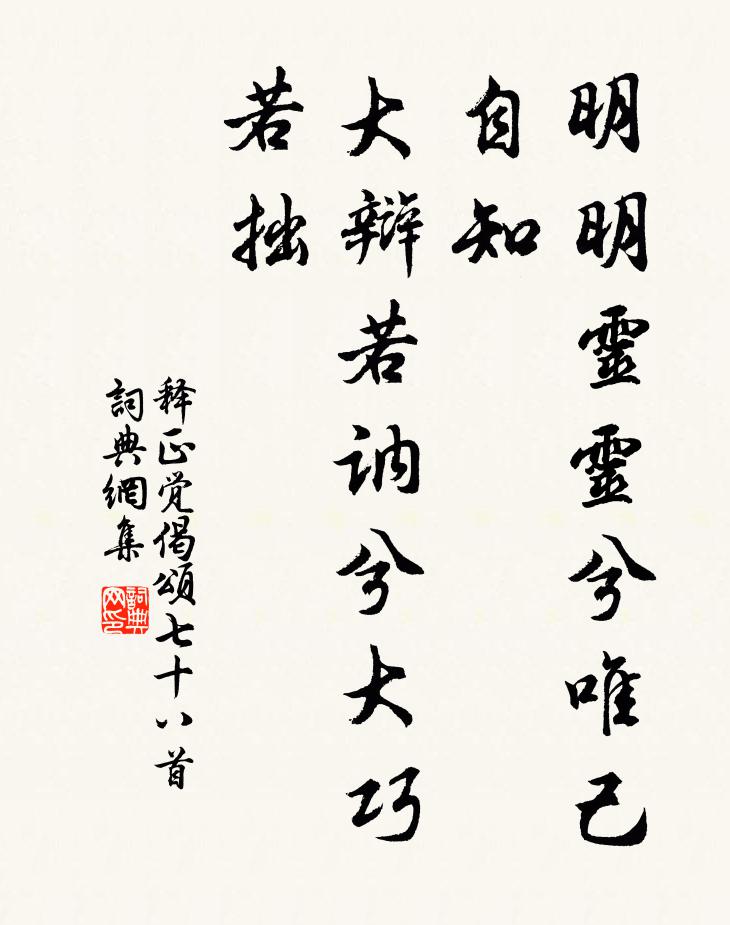 明明靈靈兮唯己
自知
大辯若訥兮大巧
若拙
释正觉偈頌七十八首
詞典網集
詞典网印